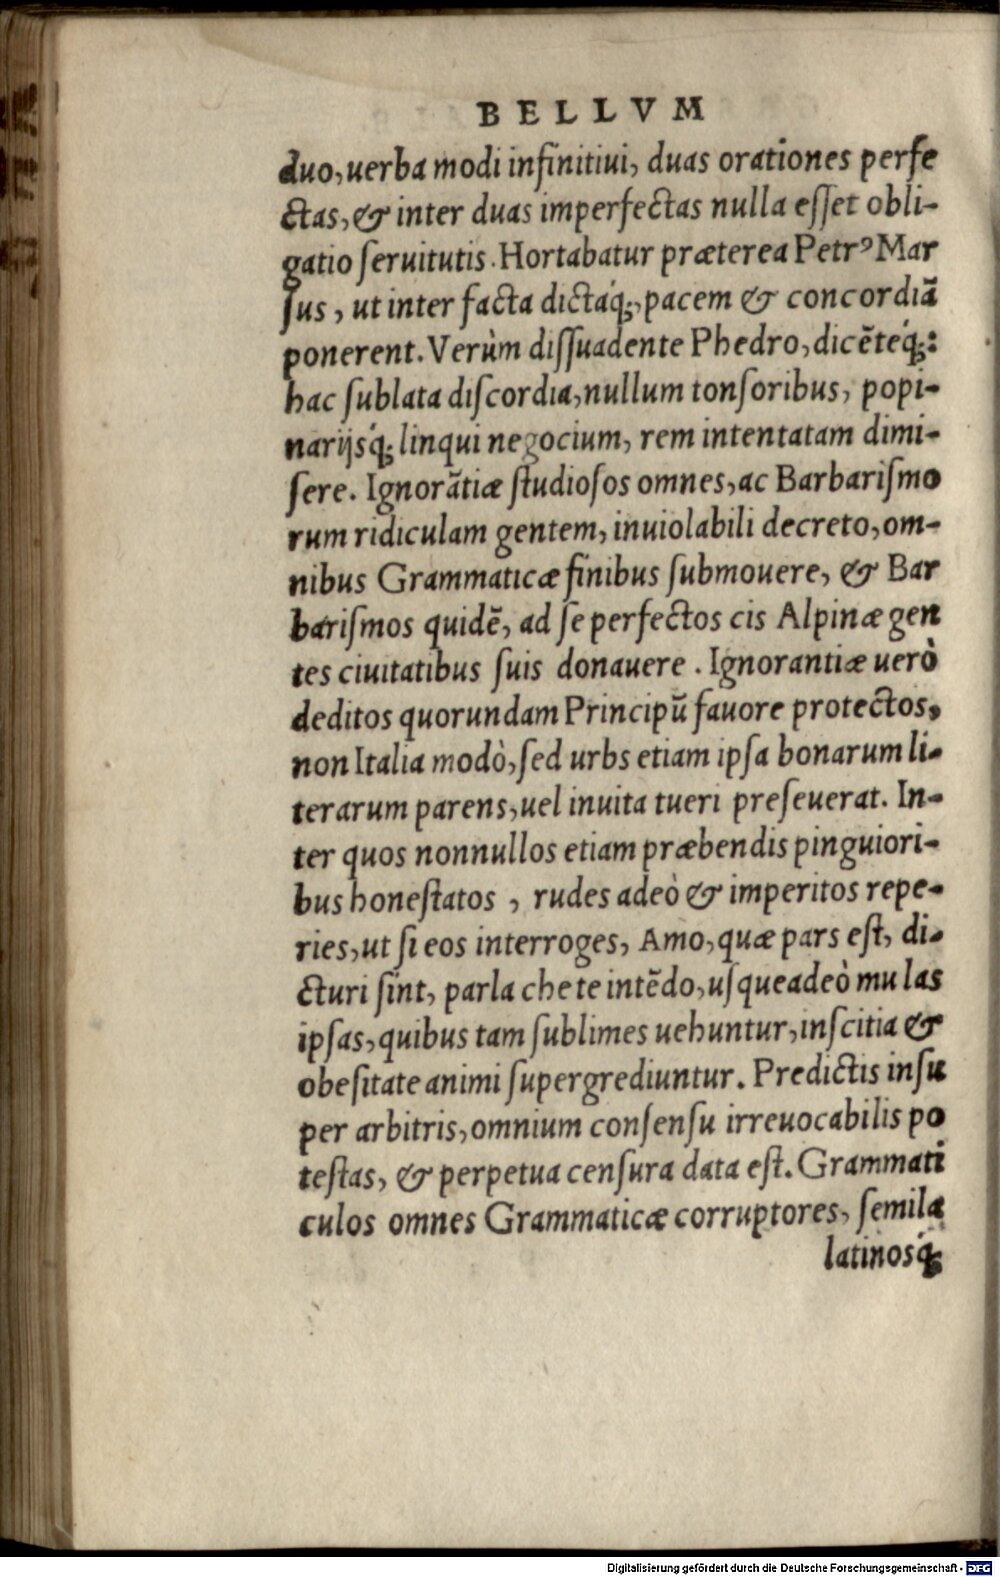 BELLVM
duo, uerba modi infinitiui, duas orationes perfe
ctas, & inter duas imperfectas nulla eſſet obli-
gatio ſeruitutis. Hortabatur præterea Petrꝰ Mar
ſus, ut inter facta dictaq́;, pacem & concordiã
ponerent. Verùm diſſuadente Phedro, dicẽteq́;:
hac ſublata diſcordia, nullum tonſoribus, popi-
narijsq́; linqui negocium, rem intentatam dimi-
ſere. Ignorãtiæ ſtudioſos omnes, ac Barbariſmo
rum ridiculam gentem, inuiolabili decreto, om-
nibus Grammaticæ finibus ſubmouere, & Bar
bariſmos quidẽ, ad ſe perfectos cis Alpinæ gen
tes ciuitatibus ſuis donauere. Ignorantiæ uerò
deditos quorundam Principũ fauore protectos,
non Italia modò, ſed urbs etiam ipſa bonarum li-
terarum parens, uel inuita tueri preſeuerat. In-
ter quos nonnullos etiam præbendis pinguiori-
bus honeſtatos, rudes adeò & imperitos repe-
ries, ut ſi eos interroges, Amo, quæ pars eſt, di-
cturi ſint, parla che te intẽdo, uſqueadeò mulas
ipſas, quibus tam ſublimes uehuntur, inſcitia &
obeſitate animi ſupergrediuntur. Predictis inſu
per arbitris, omnium conſenſu irreuocabilis po
teſtas, & perpetua cenſura data eſt. Grammati
culos omnes Grammaticæ corruptores, ſemila
latinosq́;
Digitalisierung gefördert durch die Deutsche Forschungsgemeinschaft - DFG